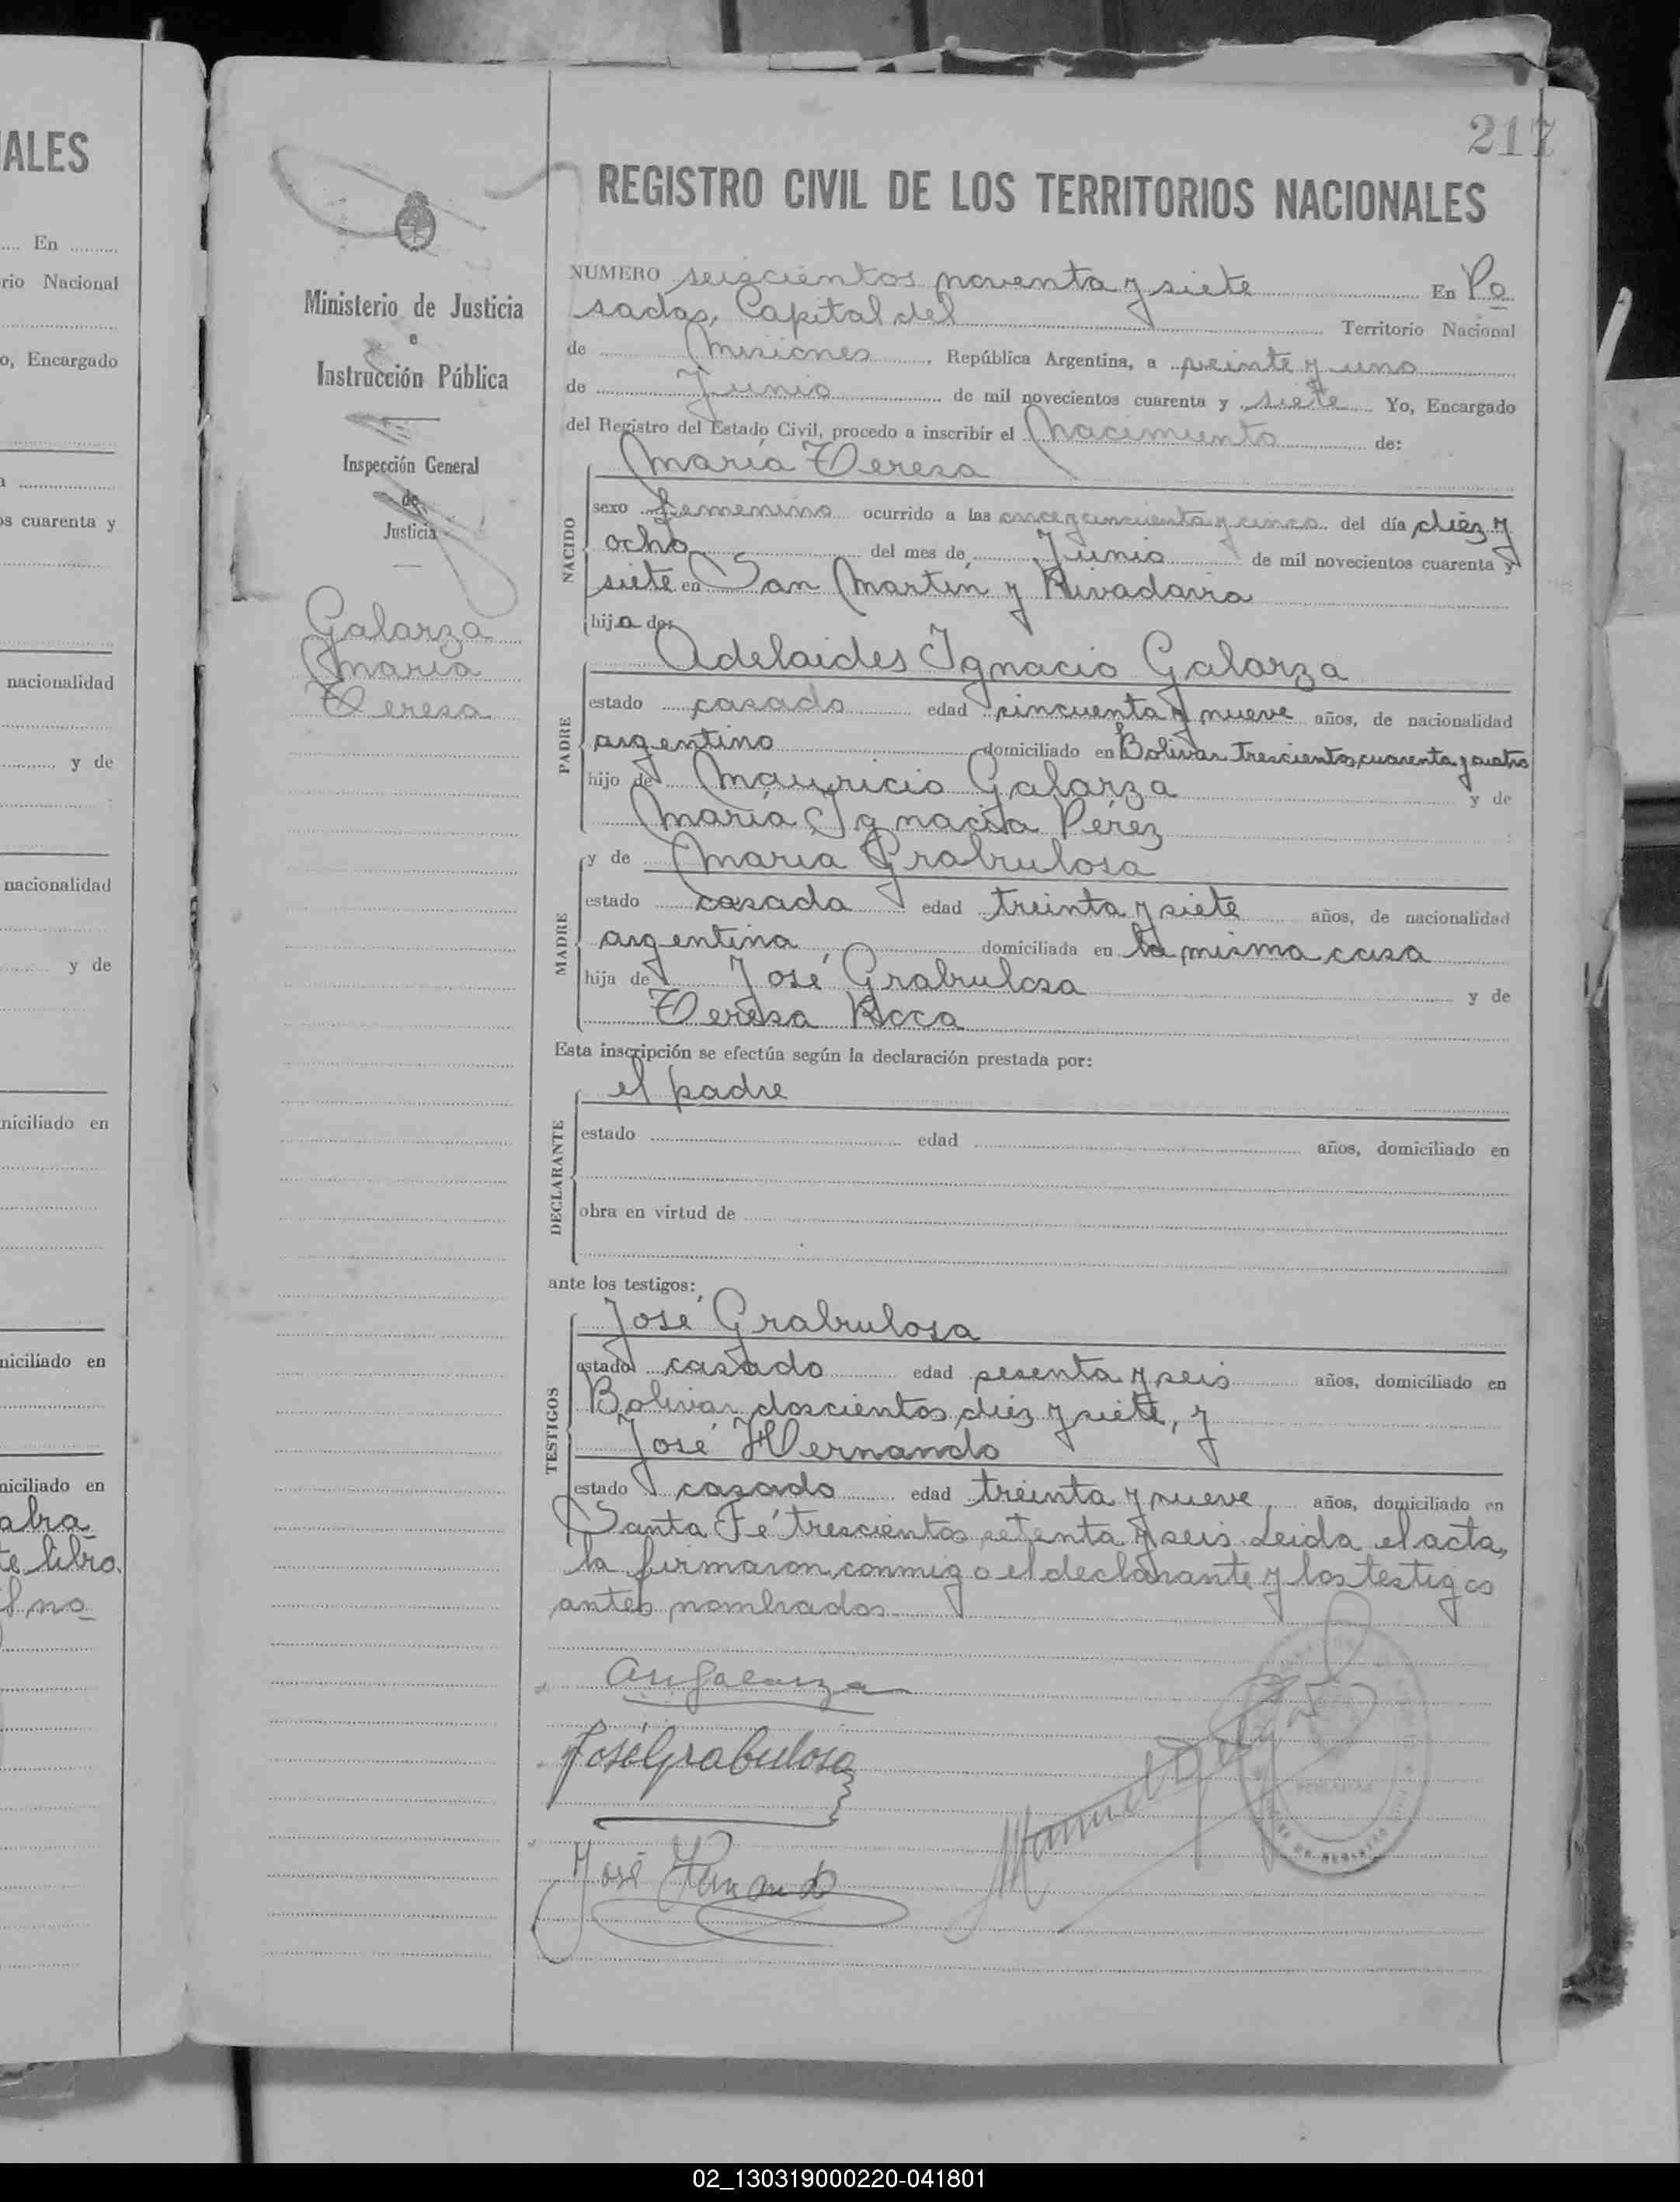 ALES
En
rio Nacional
o, Encargado
a
os cuarenta y
nacionalidad
y de
nacionalidad
y de
niciliado en
niciliado en
niciliado en
abra
te libro.
no
217
REGISTRO CIVIL DE LOS TERRITORIOS NACIONALES
Ministerio de Justicia
e
Instrucción Pública
Inspección General
de
Justicia
Galarza
María
Teresa
NUMERO seiscientos noventa y siete En Po
sadas, Capital del Territorio Nacional
de Misiones, República Argentina, a veinte y uno
de Junio de mil novecientos cuarenta y siete Yo, Encargado
del Registro del Estado Civil, procedo a inscribir el Nacimiento de:
María Teresa
NACIDO
sexo femenino ocurrido a las once y cincuenta y cinco del día diéz y
ocho del mes de Junio de mil novecientos cuarenta y
siete en San Martín y Rivadavia
hija de:
PADRE
Adelaides Ignacio Galarza
estado casado edad cincuenta y nueve años, de nacionalidad
argentino domiciliado en Bolivar trescientos cuarenta y cuatro
hijo de Mauricio Galarza y de
María Ignacia Pérez
MADRE
y de Maria Grabulosa
estado casada edad treinta y siete años, de nacionalidad
argentina domiciliada en la misma casa
hija de José Grabulosa y de
Teresa Roca
Esta inscripción se efectúa según la declaración prestada por:
DECLARANTE
el padre
estado edad años, domiciliado en
obra en virtud de
ante los testigos:
TESTIGOS
José Grabulosa
estado casado edad sesenta y seis años, domiciliado en
Bolivar doscientos diéz y siete, y
José Hernando
estado casado edad treinta y nueve años, domiciliado en
Santa Fé trescientos setenta y seis. Leida el acta,
la firmaron conmigo el declarante y los testigos
antes nombrados.
José Grabulosa
José Hernando
Manuel
02_130319000220-041801